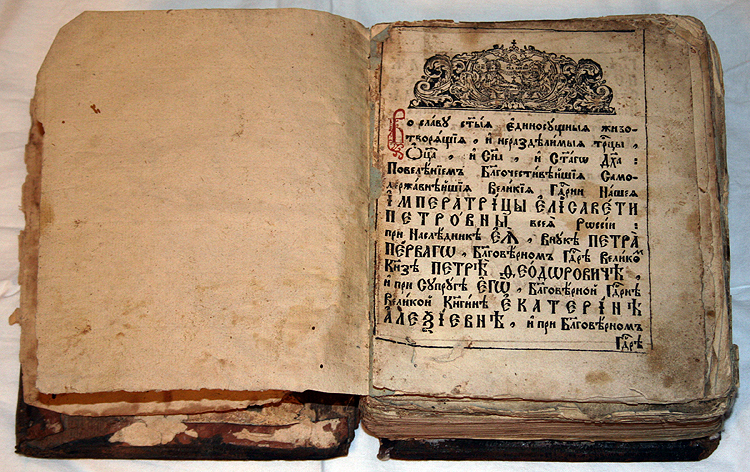 Во славу ст҃ыѧ єдиносущныѧ живо-
творѧщіѧ , и нераздѣлимыѧ трⷪ҇цы ,
Ѻц҃а , и Сн҃а , и Ст҃агѡ Дх҃а :
Повелѣніємъ Благочестивѣйшіѧ Само-
державнѣйшіѧ Великіѧ Гдⷭ҇рни Нашеѧ
ІМПЕРАТРІЦЫ ЄЛІСАВЕТИ
ПЕТРОВНЫ всеѧ Рѡссіи :
при Наслѣдникѣ ЄѦ , Внукѣ ПЕТРА
ПЕРВАГѠ , Благовѣрномъ Гдⷭ҇рѣ Великоⷨ
Кн҃зѣ ПЕТРѢ ѲЕОДѠРОВИЧѢ ,
и при Супругѣ ЄГѠ , Благовѣрной Гдⷭ҇рнѣ
Великой Кнгинѣ ЄКАТЕРІНѢ
АЛЕѮІЕВНѢ , и при Благовѣрномъ
Гдⷭ҇рѣ